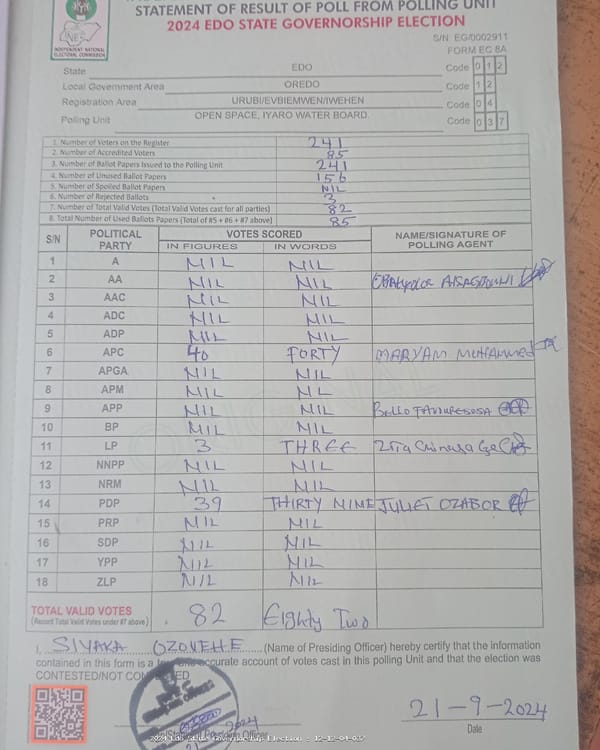 STATEMENT OF RESULT OF POLL FROM POLLING UNIT
2024 EDO STATE GOVERNORSHIP ELECTION
INEC
INDEPENDENT NATIONAL ELECTORAL COMMISSION
S/N: EG/0002911
FORM EC 8A
State EDO Code 0 1 2
Local Government Area OREDO Code 1 2
Registration Area URUBI/EVBIEMWEN/IWEHEN Code 0 4
Polling Unit OPEN SPACE, IYARO WATER BOARD Code 0 3 7
1. Number of Voters on the Register 241
2. Number of Accredited Voters 85
3. Number of Ballot Papers Issued to the Polling Unit 241
4. Number of Unused Ballot Papers 156
5. Number of Spoiled Ballot Papers NIL
6. Number of Rejected Ballots 3
7. Number of Total Valid Votes (Total Valid Votes cast for all parties) 82
8. Total Number of Used Ballots Papers (Total of #5 + #6 + #7 above) 85
S/N POLITICAL PARTY VOTES SCORED NAME/SIGNATURE OF POLLING AGENT
IN FIGURES IN WORDS
1 A NIL NIL
2 AA NIL NIL
3 AAC NIL NIL
4 ADC NIL NIL
5 ADP NIL NIL
6 APC 40 FORTY MARYAM MUHAMMED
7 APGA NIL NIL
8 APM NIL NIL
9 APP NIL NIL BELLO
10 BP NIL NIL
11 LP 3 THREE
12 NNPP NIL NIL
13 NRM NIL NIL
14 PDP 39 THIRTY NINE JULIET OZABOR
15 PRP NIL NIL
16 SDP NIL NIL
17 YPP NIL NIL
18 ZLP NIL NIL
TOTAL VALID VOTES 82 Eighty Two
(Record Total Valid Votes under #7 above)
I, SIYAKA OZOVEHE (Name of Presiding Officer) hereby certify that the information
contained in this form is a accurate account of votes cast in this polling Unit and that the election was
CONTESTED/NOT CONTESTED
21-9-2024
Date
2024 Edo State Governorship Election : 12-12-04-037